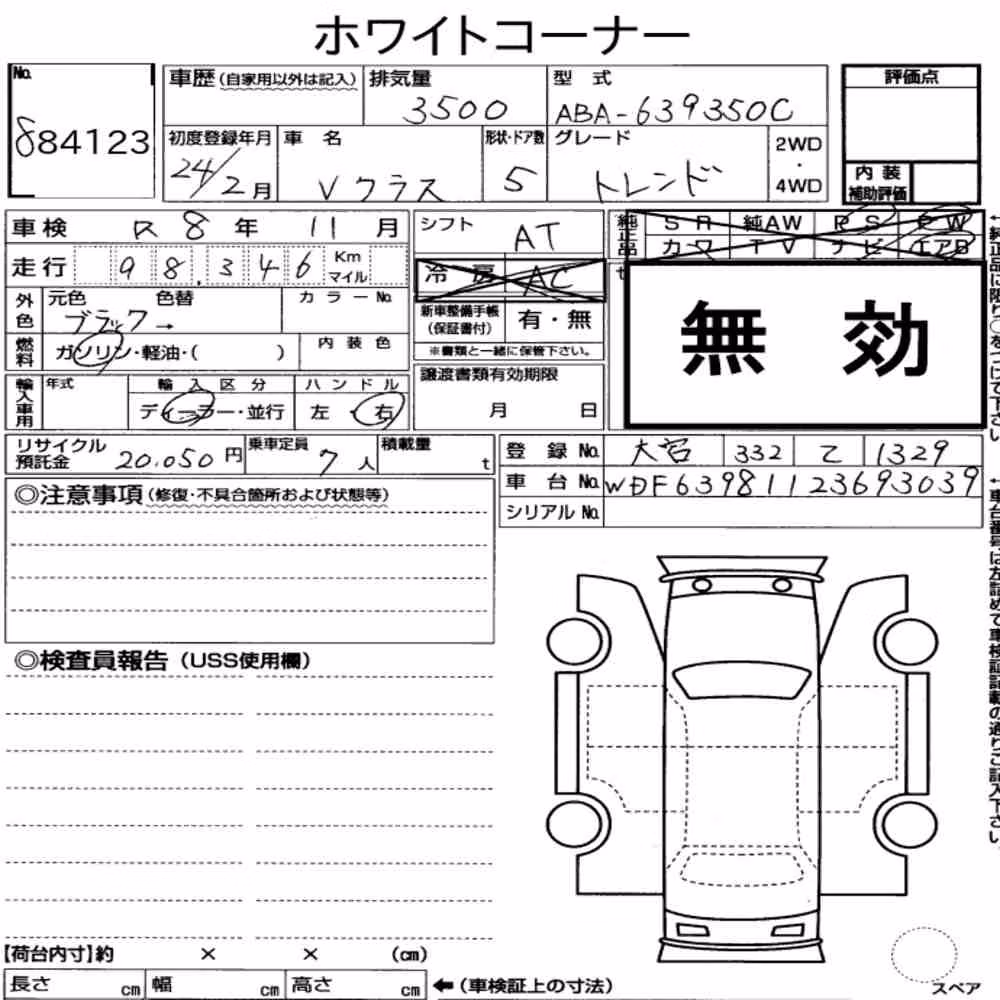 ホワイトコーナー
No.
84123
車歴(自家用以外は記入) 排気量 3500 型式 ABA-639350C
初度登録年月 24/2月 車名 Vクラス 形状・ドア数 5 グレード トレンド 2WD・4WD
評価点
内装補助評価
車検 R 8年 11月
走行 98,346 Km マイル
外色 元色 ブラック→ 色替 カラーNo.
燃料 ガソリン・軽油・( ) 内装色
輸入車用 年式 輸入区分 ディーラー・並行 ハンドル 左・右
シフト AT
冷房 AC
新車整備手帳(保証書付) 有・無
※書類と一緒に保管下さい。
譲渡書類有効期限
月 日
純正品 SR 純AW PS PW
カワ TV ナビ エアB
無効
←純正品に限り○をつけて下さい
リサイクル預託金 20.050円 乗車定員 7人 積載量 t
登録No. 大宮 332 て 1329
車台No. WDF63981123693039
シリアルNo.
←車台番号は左詰めで車検証記載の通りご記入下さい。
◎注意事項(修復・不具合箇所および状態等)
◎検査員報告(USS使用欄)
【荷台内寸】約 × × (cm)
長さ cm 幅 cm 高さ cm ←(車検証上の寸法)
スペア